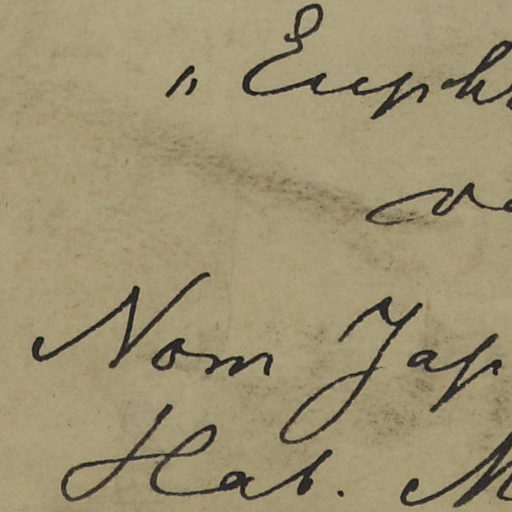 " Euph
Nom Jap
Hab. M